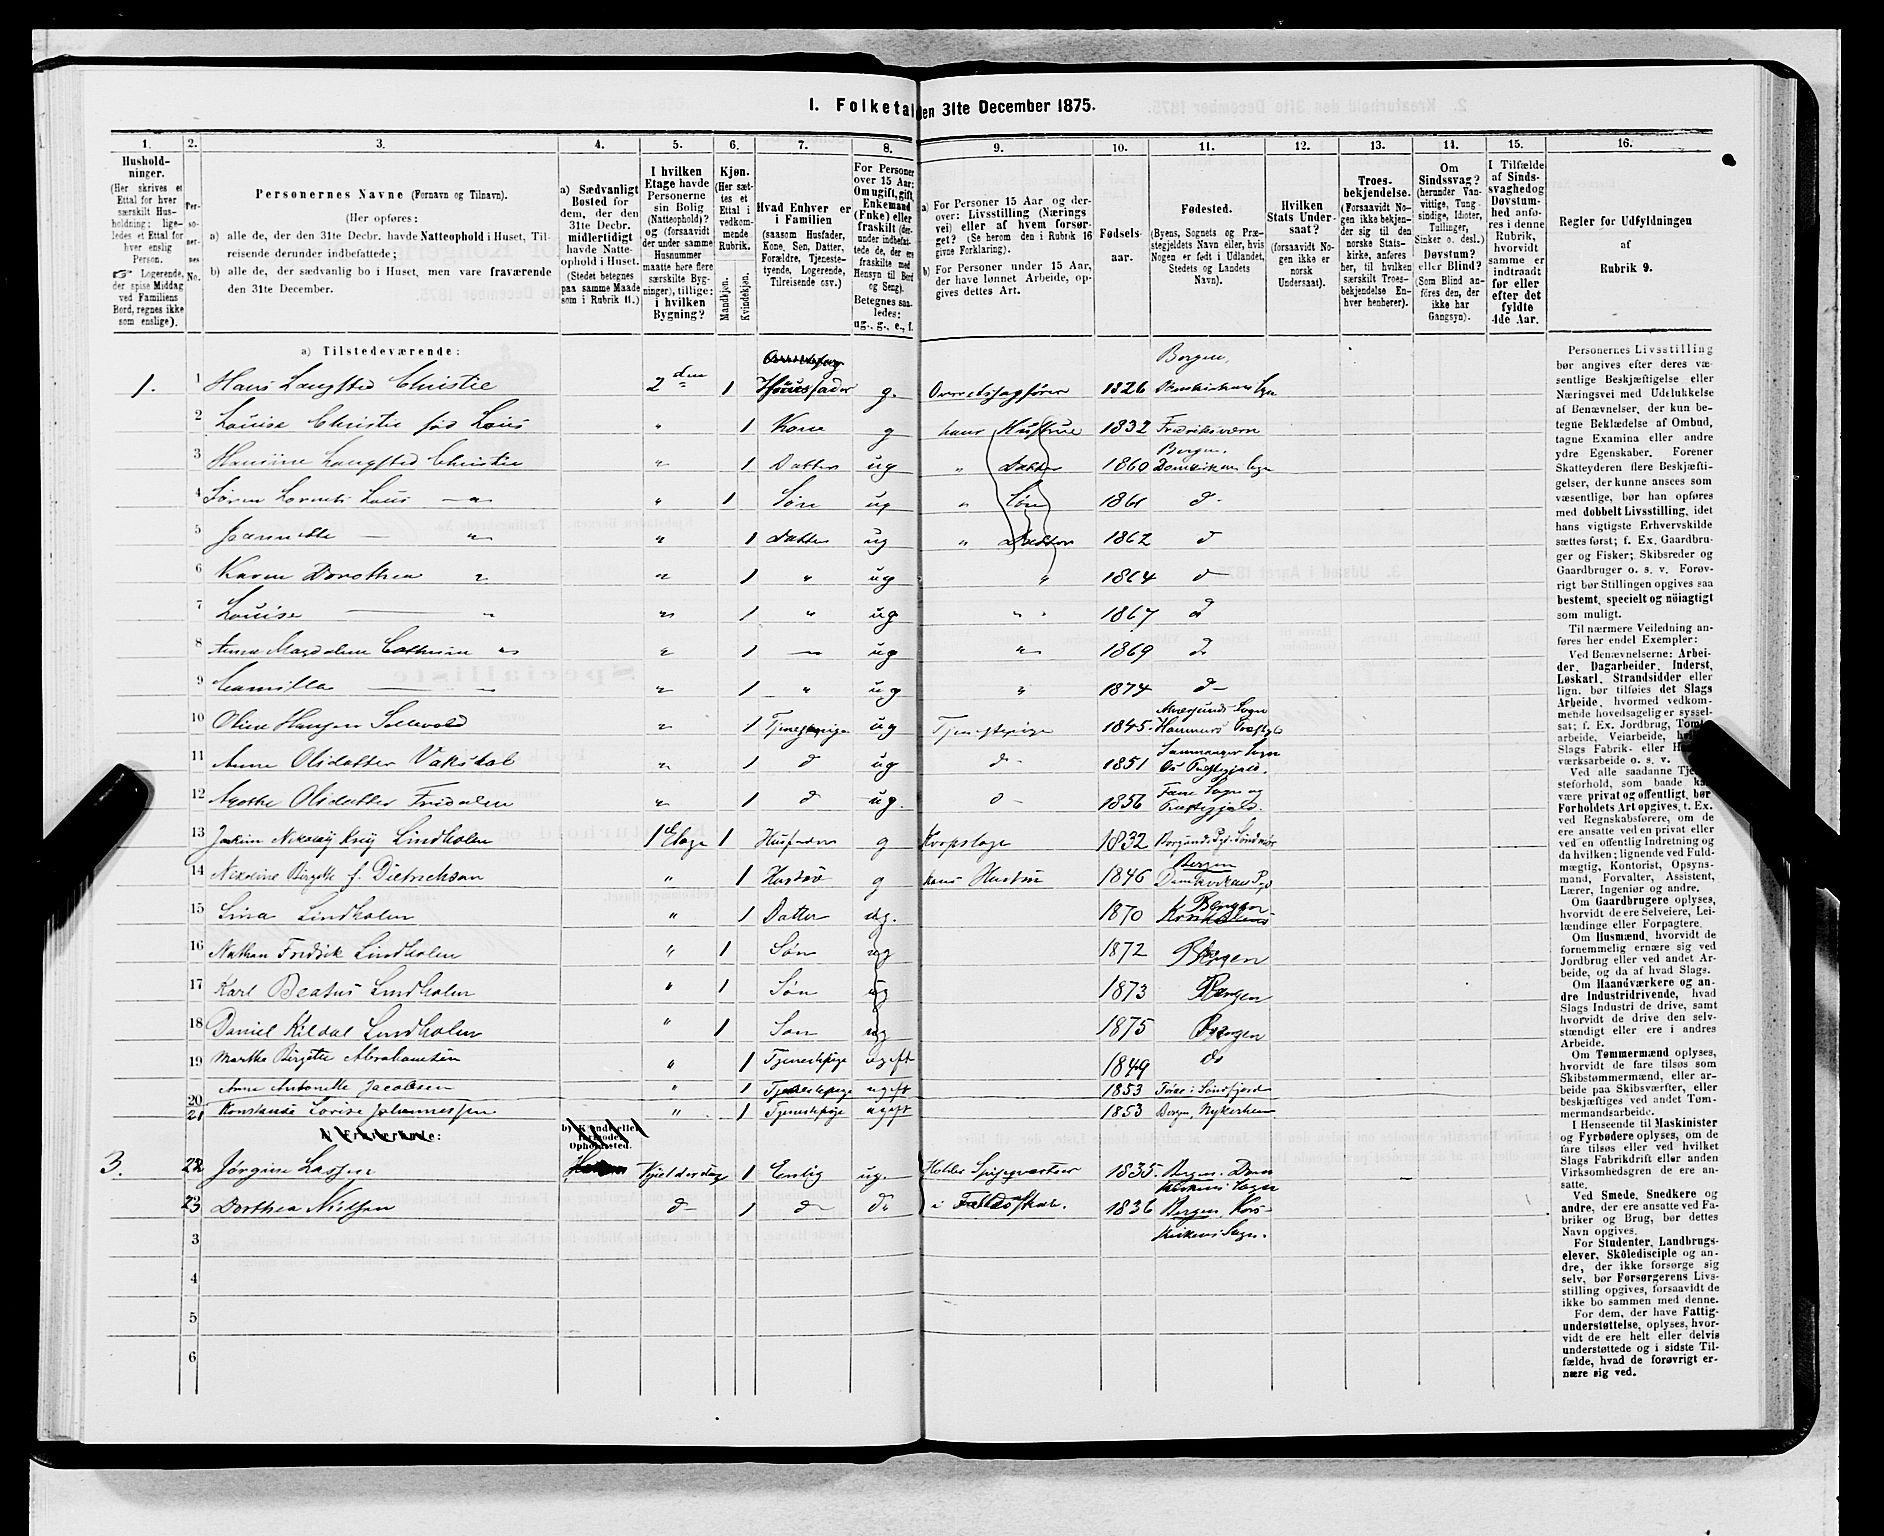 1. Folketal den 31te December 1875.
1. 2. 3. 4. 5. 6. 7. 8. 9. 10. 11. 12. 13. 14. 15. 16.
Hushold-
ninger.
(Her skrives et
Ettal for hver
særskilt Hus-
holdning; lige-
ledes et Ettal for
hver enslig
Person.
☞ Logerende,
der spise Middag
ved Familiens
Bord, regnes ikke
som enslige).
Per-
so-
ner-
nes
No.
Personernes Navne (Fornavn og Tilnavn).
(Her opføres:
a) alle de, der den 31te Decbr. havde Natteophold i Huset, Til-
reisende derunder indbefattede;
b) alle de, der sædvanlig bo i Huset, men vare fraværende
den 31te December.
a) Sædvanligt
Bosted for
dem, der den
31te Decbr.
midlertidigt
havde Natte-
ophold i Huset.
(Stedet betegnes
paa samme Maade
som i Rubrik 11.)
I hvilken
Etage havde
Personerne
sin Bolig
(Natteophold)?
og (forsaavidt
der under samme
Husnummer
maatte høre flere
særskilte Byg-
ninger), tillige:
i hvilken
Bygning?
Kjøn.
(Her sæt-
tes et
Ettal i
vedkom-
mende
Rubrik.
Mandkjøn.
Kvindekjøn.
Hvad Enhver er
i Familien
(saasom Husfader,
Kone, Søn, Datter,
Forældre, Tjeneste-
tyende, Logerende,
Tilreisende osv.)
For Personer
over 15 Aar;
Om ugift, gift,
Enkemand
(Enke) eller
fraskilt (der-
under indbefat-
tede de, der ere
fraskilte med
Hensyn til Bord
og Seng).
Betegnes saa-
ledes:
ug., g., e., f.
a) For Personer 15 Aar og der-
over: Livsstilling (Nærings
vei) eller af hvem forsør-
get? (Se herom den i Rubrik 16
givne Forklaring).
b) For Personer under 15 Aar,
der have lønnet Arbeide, op-
gives dettes Art.
Fødsels-
aar.
Fødested.
(Byens, Sognets og Præ-
stegjeldets Navn eller, hvis
Nogen er født i Udlandet,
Stedets og Landets
Navn).
Hvilken
Stats Under-
saat?
(forsaavidt No-
gen ikke er
norsk
Undersaat).
Troes-
bekjendelse.
(Forsaavidt No-
gen ikke bekjen-
der sig til den
norske Stats-
kirke, anføres
her, til hvilken
særskilt Troes-
bekjendelse En-
hver henhører).
Om
Sindssvag?
(herunder Van-
vittige, Tung-
sindige, Idioter,
Tullinger,
Sinker o. desl.)
Døvstum?
eller Blind?
(Som Blind an-
føres den, der
ikke har
Gangsyn).
I Tilfælde
af Sinds-
svaghed og
Døvstum-
hed anfø-
res i denne
Rubrik,
hvorvidt
samme er
indtraadt
før eller
efter det
fyldte
4de Aar.
Regler for Udfyldningen
af
Rubrik 9.
a) Tilstedeværende:
Bergen,
1. 1 Hans Langsted Christie 2den 1 Huusfader g. Overretssagfører 1826 Domkirkens Sogn
2 Louise Christie fød Lous " 1 Kone g hans Hustrue 1832 Fredriksværn
Bergen.
3 Hansine Langsted Christie " 1 Datter ug " Datter 1860 Domkirkens Sogn
4 Søren Lorentz Lous " " 1 Søn ug " Søn 1861 d
5 Jeannette " " 1 Datter ug " Datter 1862 d
6 Karen Dorothea " " 1 " ug " 1864 d
7 Louise " " 1 " ug " " 1867 d
8 Anna Magdalene Cathrine " " 1 " ug " 1869 d
9 Camilla " " 1 " ug " 1874 d
10 Oline Hansen " 1 Tjenestpige ug Tjenestepige 1845 Hammers Præstegj
Samnanger Sogn
11 Anne Olsdatter Vaksdal " 1 d ug d 1851 Os Præstegjeld.
Fane Sogn og
12 Agathe Olsdatter Fredalen " 1 d ug. d 1856 Præstegjeld.
13 Joakim Nikolay Krey Lindholm 1 Etage 1 Husfader g 1832 Borgunds Pgj. Søndmør
Bergen
14 Nikoline Birgitte f. Dietrichson " 1 Hustru g hans Hustru 1846 Domkirkens
Bergen
15 Lina Lindholm " 1 Datter ug. 1870
16 Nathan Fredrik Lindholm " 1 Søn ug 1872 Bergen
17 Karl Beatus Lindholm " 1 Søn ug 1873 Bergen
18 Daniel Kildal Lindholm " 1 Søn ug 1875 Bergen
19 Martha Birgitte Abrahamsen " 1 Tjenestepige ugift 1849 do
20 Anne Antonette Jacobsen " 1 Tjenestepige ugift 1853 i Søndfjord
21 Konstanse Lovise Johannessen " 1 Tjenestepige ugift 1853 Bergen Nykerken
b) Kjendt eller
formodet
Opholdssted.
3. 22 Jørgine Lassen Kjelderetag 1 Enslig ug. Holder Spiseqvarteer 1835. Bergen. Dom
kirkens Sogn
23 Dorthea Nielsen d 1 d do i Fælledsskab. 1836 Bergen. Kors
kirkens Sogn.
3
4
5
6
Personernes Livsstilling
bør angives efter deres væ-
sentlige Beskjæftigelse eller
Næringsvei med Udelukkelse
af Benævnelser, der kun be-
tegne Beklædelse af Ombud,
tagne Examina eller andre
ydre Egenskaber. Forener
Skatteyderen flere Beskjæfti-
gelser, der kunne ansees som
væsentlige, bør han opføres
med dobbelt Livsstilling, idet
hans vigtigste Erhvervskilde
sættes først; f. Ex. Gaardbru-
ger og Fisker; Skibsreder og
Gaardbruger o. s. v. Forøv-
rigt bør Stillingen opgives saa
bestemt, specielt og nöiagtigt
som muligt.
Til nærmere Veiledning an-
føres her endel Exempler:
Ved Benævnelserne: Arbei-
der, Dagarbeider, Inderst,
Løskarl, Strandsidder eller
lign. bør tilføies det Slags
Arbeide, hvormed vedkom-
mende hovedsagelig er syssel-
sat; f. Ex. Jordbrug, Tomte-
arbeide, Veiarbeide,
Slags Fabrik- eller
værksarbeide o. s. v.
Ved alle saadanne
steforhold, som baade
være privat og offentligt, bør
Forholdets Art opgives, t. Ex.
ved Regnskabsførere, om de
ere ansatte ved en privat eller
ved en offentlig Indretning og
da hvilken; lignende ved Fuld-
mægtig, Kontorist, Opsyns-
mand, Forvalter, Assistent,
Lærer, Ingeniør og andre.
Om Gaardbrugere oplyses,
hvorvidt de ere Selveiere, Lei-
lændinge eller Forpagtere.
Om Husmænd, hvorvidt de
fornemmelig ernære sig ved
Jordbrug eller ved andet Ar-
beide, og da af hvad Slags.
Om Haandværkere og an-
dre Industridrivende, hvad
Slags Industri de drive, samt
hvorvidt de drive den selv-
stændigt eller ere i andres
Arbeide.
Om Tømmermænd oplyses,
hvorvidt de fare tilsøs som
Skibstømmermænd, eller ar-
beide paa Skibsværfter, eller
beskjæftiges ved andet Tøm-
mermandsarbeide.
I Henseende til Maskinister
og Fyrbødere oplyses, om de
fare tilsøs eller ved hvilket
Slags Fabrikdrift eller anden
Virksomhedsgren de ere an-
satte.
Ved Smede, Snedkere og
andre, der ere ansatte ved Fa-
briker og Brug, bør dettes
Navn opgives.
For Studenter, Landbrugs-
elever, Skoledisciple og an-
dre, der ikke forsørge sig
selv, bør Forsørgerens Livs-
stilling opgives, forsaavidt de
ikke bo sammen med denne.
For dem, der have Fattig-
understøttelse, oplyses, hvor-
vidt de ere helt eller delvis
understøttede og i sidste Til-
fælde, hvad de forøvrigt er-
nære sig ved.